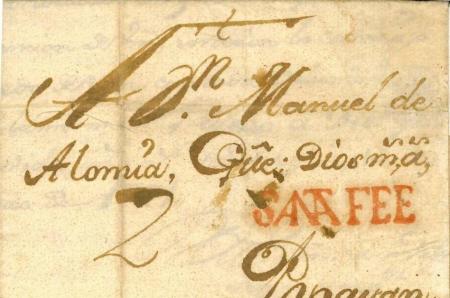 A D.ⁿ Manuel de
Alomia, Gûe: Dios m.ˢ a.ˢ
SANTA FEE
2
Popayan